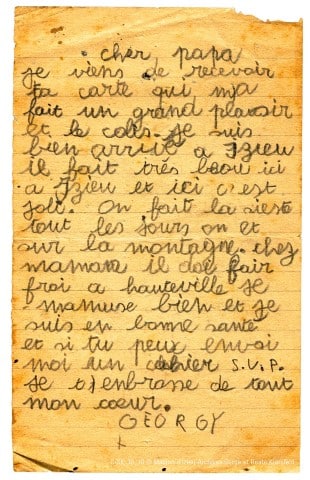 cher papa
je viens de recevoir
ta carte qui mja
fait un grand plaisir
et le colis. je suis
bien arrivé a Izieu
il fait très beau ici
a Izieu et ici c'est
joli. On fait la sieste
tout les jours on et
sur la montagne. chez
maman il doi fair
froi a hauteville je
mamuse bien et je
suis en bonne santé
et si tu peux envoi
moi un cahier S.V.P.
je t'enbrasse de tout
mon cœur.
GEORGY